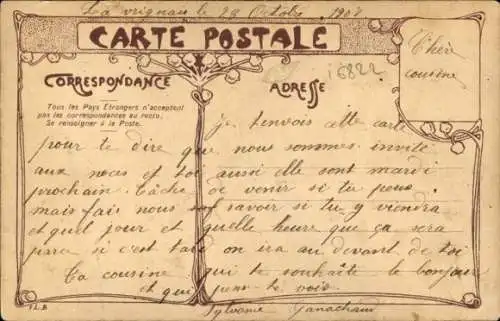 La vrignais le 28 Octobre 1907
CARTE POSTALE
CORRESPONDANCE
ADRESSE
16822
Tous les Pays Étrangers n'acceptent
pas les correspondances au recto.
Se renseigner à la Poste.
Chère
cousine
je tenvois cette carte
pour te dire que nous sommes invité
aux noces et toi aussi elle sont mardi
prochain Tâche de venir si tu peus
mais fais nous savoir si tu y viendra
et quel jour et quelle heure que ça sera
parce si c'est tard on ira au devant de toi
Ta cousine qui te souhaite le bonjour
et qui pense te voir
Sylvanie